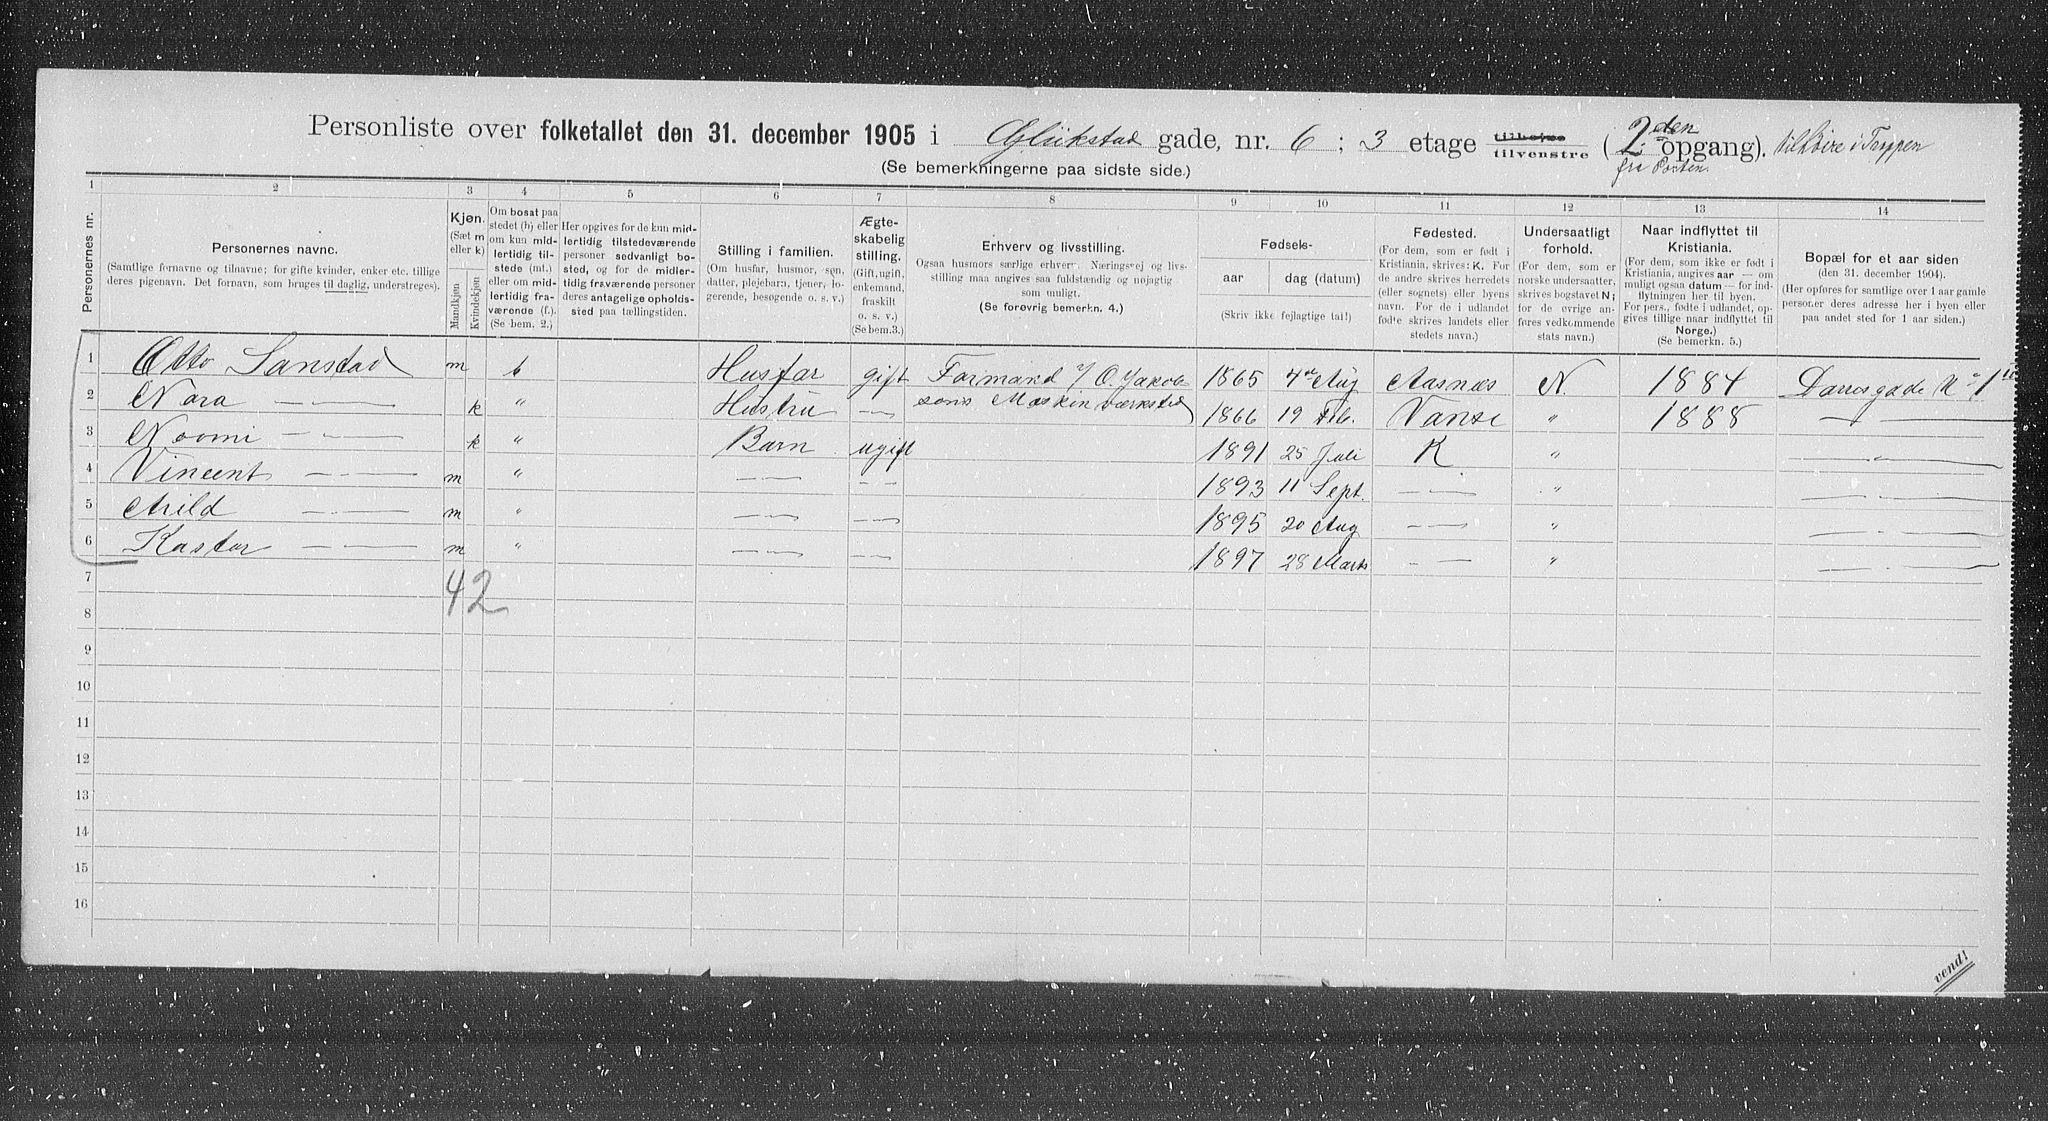 Personliste over folketallet den 31. december 1905 i Glückstad gade, nr. 6 ; 3 etage tilhøire tilvenstre ( 2den opgang). tilhøire i Trappen
fra Porten
(Se bemerkningerne paa sidste side.)
1 2 3 4 5 6 7 8 9 10 11 12 13 14
Personernes nr.
Personernes navne.
(Samtlige fornavne og tilnavne; for gifte kvinder, enker etc. tillige
deres pigenavn. Det fornavn, som bruges til daglig, understreges).
Kjøn.
(Sæt m
eller k)
Mandkjøn
Kvindekjøn
Om bosat paa
stedet (b) eller
om kun mid-
lertidig til-
stede (mt.)
eller om mid-
lertidig fra-
værende (f.).
(Se bem. 2.)
Her opgives for de kun mid-
lertidig tilstedeværende
personer sedvanligt bo-
sted, og for de midler-
tidig fraværende personer
deres antagelige opholds-
sted paa tællingstiden.
Stilling i familien.
(Om husfar, husmor, søn,
datter, plejebarn, tjener, lo-
gerende, besøgende o. s. v.)
Ægte-
skabelig
stilling.
(Gift, ugift,
enkemand,
fraskilt
o. s. v.)
(Se bem. 3.)
Erhverv og livsstilling.
Ogsaa husmors særlige erhverv. Næringsvej og livs-
stilling maa angives saa fuldstændig og nøjagtig
som muligt.
(Se forøvrig bemerkn. 4.)
Fødsels-
aar
dag (datum)
(Skriv ikke fejlagtige tal!)
Fødested.
(For dem, som er født i
Kristiania, skrives: K. For
de andre skrives herredets
(eller sognets) eller byens
navn. For de i udlandet
fødte skrives landets eller
stedets navn.)
Undersaatligt
forhold.
(For dem, som er
norske undersaatter,
skrives bogstavet N;
for de øvrige an-
føres vedkommende
stats navn.)
Naar indflyttet til
Kristiania.
(For dem, som ikke er født i
Kristiania, angives aar — om
muligt ogsaa datum — for ind-
flytningen her til byen.
For pers., fødte i udlandet, op-
gives tillige naar indflyttet til
Norge.)
(Se bemerkn. 5.)
Bopæl for et aar siden
(den 31. december 1904).
(Her opføres for samtlige over 1 aar gamle
personer deres adresse her i byen eller
paa andet sted for 1 aar siden.)
1 Otto Sanstad m b Husfar gift Formand v/ O. Jakob- 1865 4de Aug Aasnæs N. 1884 Darresgade No 1
2 Nora — — k " Hustru — sons Maskinværksted 1866 19 Feb. Vanse " 1888 —
3 Noomi — — k " Barn ugift 1891 25 Juli K " — " —
4 Vincent — — m " — — 1893 11 Sept. — — " — —
5 Arild — — m " — — 1895 20 Aug — — " — —
6 Kastor — — m " — — 1897 28 Marts — — " — —
7
42
8
9
10
11
12
13
14
15
16
vend!